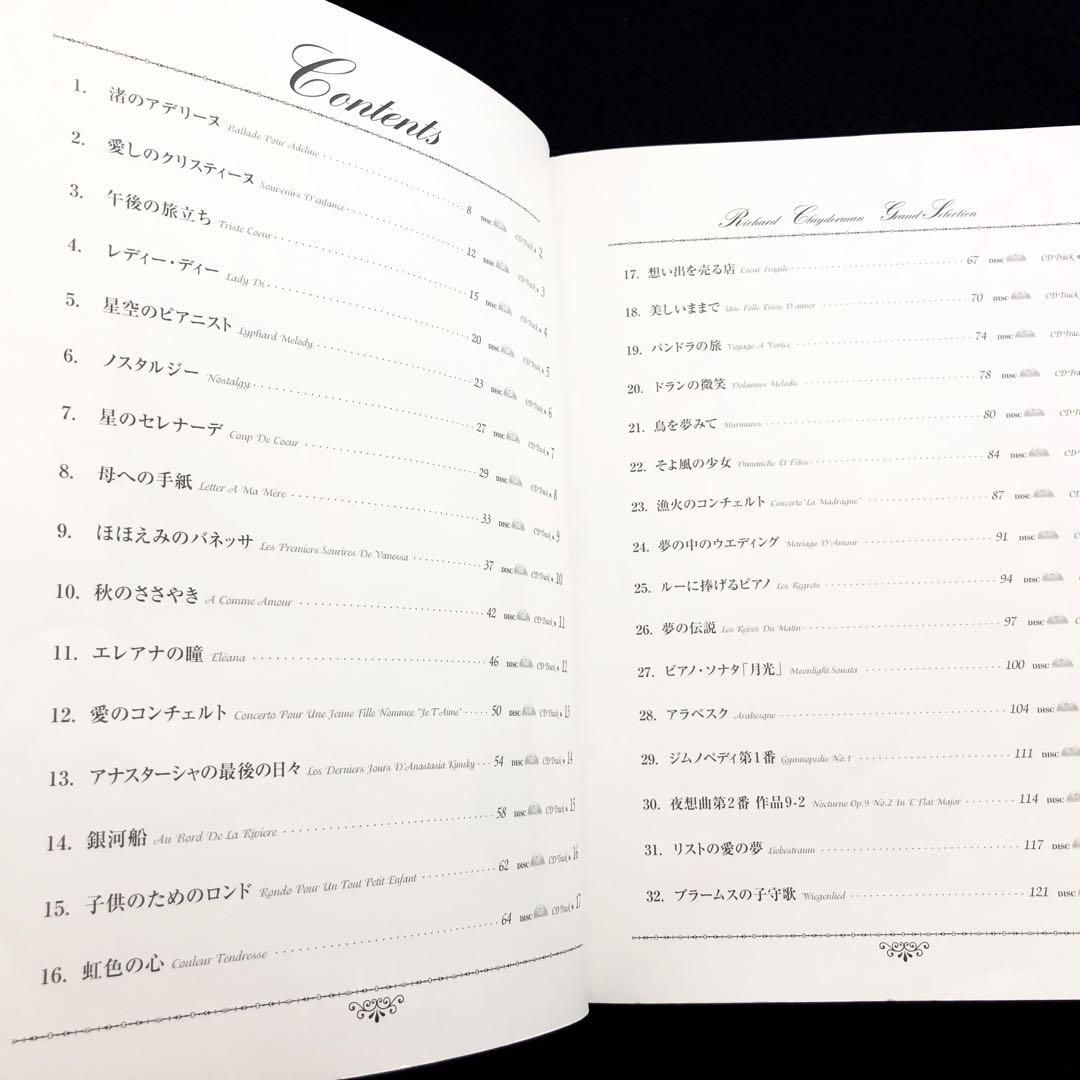 Contents
1. 渚のアデリーヌ Ballade Pour Adeline 8 DISC CD Track 2
2. 愛しのクリスティーヌ Souvenirs D'enfance 12 DISC CD Track 3
3. 午後の旅立ち Triste Coeur 15 DISC CD Track 4
4. レディー・ディー Lady Di 20 DISC CD Track 5
5. 星空のピアニスト Lyphard Melody 23 DISC CD Track 6
6. ノスタルジー Nostalgy 27 DISC CD Track 7
7. 星のセレナーデ Coup De Coeur 29 DISC CD Track 8
8. 母への手紙 Letter A Ma Mère 33 DISC CD Track 9
9. ほほえみのバネッサ Les Premiers Sourires De Vanessa 37 DISC CD Track 10
10. 秋のささやき A Comme Amour 42 DISC CD Track 11
11. エレアナの瞳 Eléana 46 DISC CD Track 12
12. 愛のコンチェルト Concerto Pour Une Jeune Fille Nommee "Je T'Aime" 50 DISC CD Track 13
13. アナスターシャの最後の日々 Les Derniers Jours D'Anastasia Kimsky 54 DISC CD Track 14
14. 銀河船 Au Bord De La Riviere 58 DISC CD Track 15
15. 子供のためのロンド Rondo Pour Un Tout Petit Enfant 62 DISC CD Track 16
16. 虹色の心 Couleur Tendresse 64 DISC CD Track 17
Richard Clayderman Grand Selection
17. 想い出を売る店 Coeur Fragile 67 DISC CD Track
18. 美しいままで Une Folle Envie D'aimer 70 DISC CD Track
19. パンドラの旅 Voyage A Venice 74 DISC CD Track
20. ドランの微笑 Dolannes Melodie 78 DISC CD Track
21.鳥を夢みて Murmures 80 DISC CD
22. そよ風の少女 Dimanche Et Fêtes 84 DISC CD
23. 漁火のコンチェルト Concerto "La Madrague" 87 DISC CD
24. 夢の中のウエディング Mariage D'Amour 91 DISC CD
25. ルーに捧げるピアノ Les Regrets 94 DISC CD
26. 夢の伝説 Les Reves Du Matin 97 DISC
27. ピアノ・ソナタ「月光」 Moonlight Sonata 100 DISC
28. アラベスク Arabesque 104 DISC
29. ジムノペディ第1番 Gymnopedie No.1 111 DISC
30. 夜想曲第2番 作品9-2 Nocturne Op.9 No.2 In E Flat Major 114 DISC
31. リストの愛の夢 Liebestraum 117 DISC
32. ブラームスの子守歌 Wiegenlied 121 DISC